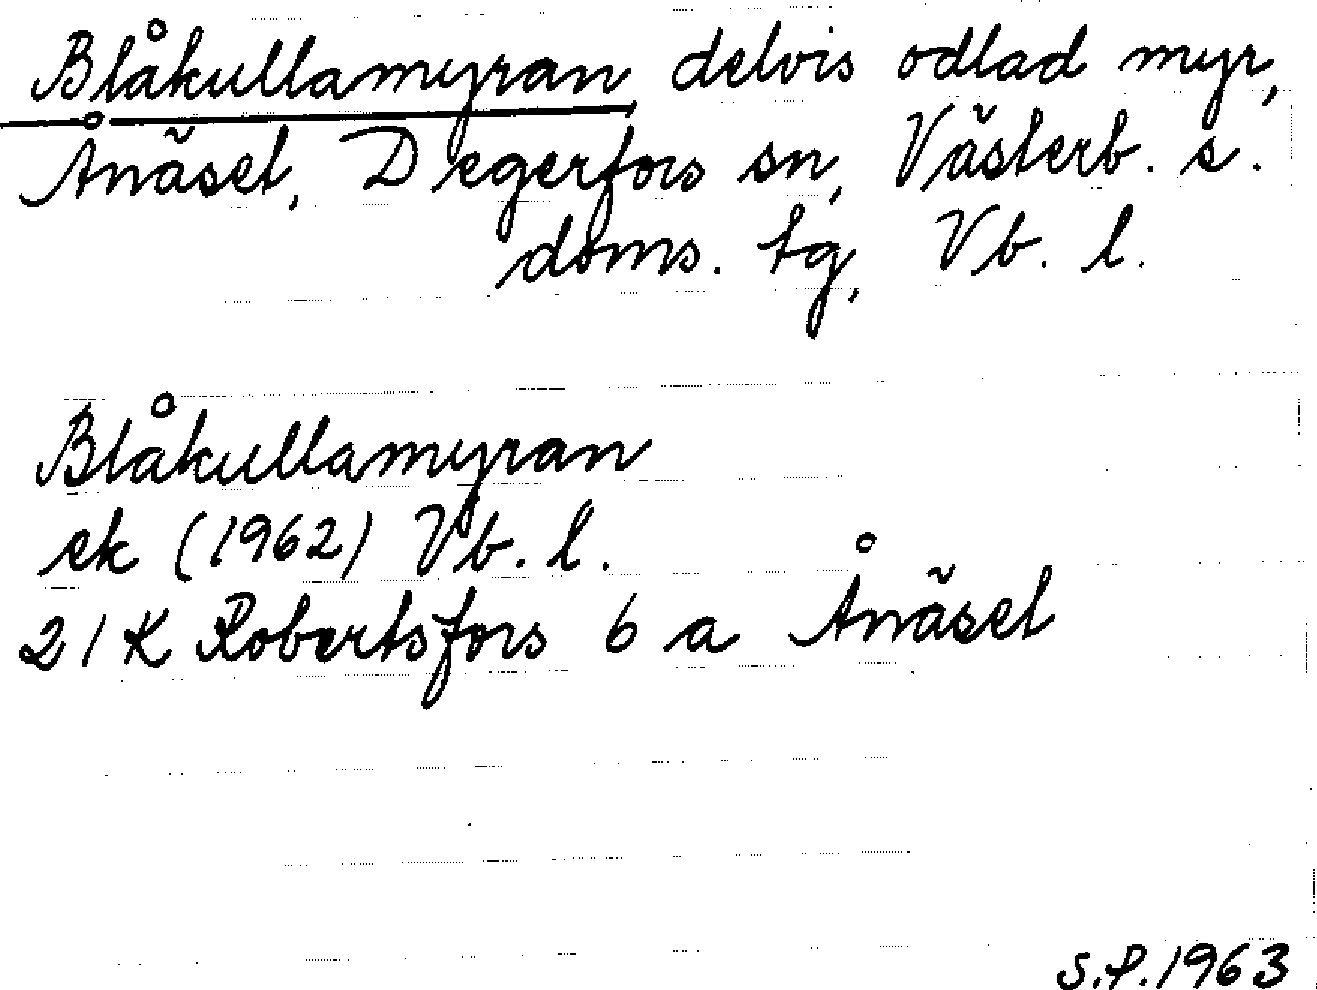 Blåkullamyran, delvis odlad myr,
Ånäset, Degerfors sn, Västerb. s.
doms. tg, Vb. l.
Blåkullamyran
ek (1962) Vb. l.
21K Robertsfors 6 a Ånäset
S.P. 1963